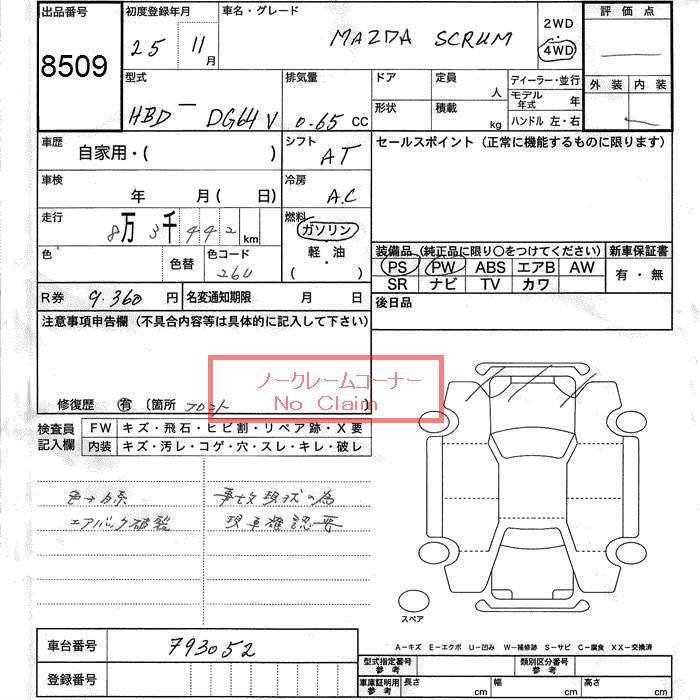 出品番号
8509
初度登録年月
25 11月
車名・グレード
MAZDA SCRUM
2WD
4WD
評価点
外装 内装
型式
HBD — DG64V
排気量
0.65 CC
ドア
定員
人
形状
積載
kg
ディーラー・並行
モデル年式 年
ハンドル 左・右
車歴
自家用・( )
シフト
AT
セールスポイント (正常に機能するものに限ります)
車検
年 月(日)
冷房
A.C
走行
8万3千442km
燃料
ガソリン
軽・油
( )
色
色替
色コード
26U
装備品 (純正品に限り〇をつけてください)
新車保証書
PS PW ABS エアB AW
SR ナビ TV カワ
有・無
R券 9.360 円
名変通知期限 月 日
後日品
注意事項申告欄 (不具合内容等は具体的に記入して下さい)
ノークレームコーナー
No Claim
修復歴 有 〔箇所 フロント
検査員記入欄
FW キズ・飛石・ヒビ割・リペア跡・X要
内装 キズ・汚レ・コゲ・穴・スレ・キレ・破レ
エアバック破裂
事故現状の為
現車確認要
スペア
車台番号 793052
登録番号
A－キズ E－エクボ U－凹み W－補修跡 S－サビ C－腐食 XX－交換済
型式指定番号 参考
類別区分番号 参考
車庫証明用 参考
長さ cm
幅 cm
高さ cm